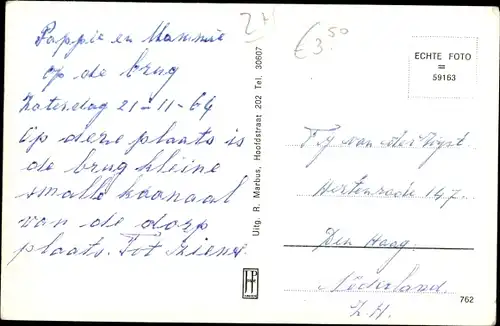 Pappie en Mammie
op de brug
Zaterdag 21-11-64
Op deze plaats is
de brug kleine
smalle kaanaal
van de dorp
plaats. Tot ziens.
2H
€3.50
ECHTE FOTO
=
59163
Uitg. R. Marbus, Hoofdstraat 202 Tel. 30607
van der
Hertenrade 147.
Den Haag.
Nederland.
Z.H.
762